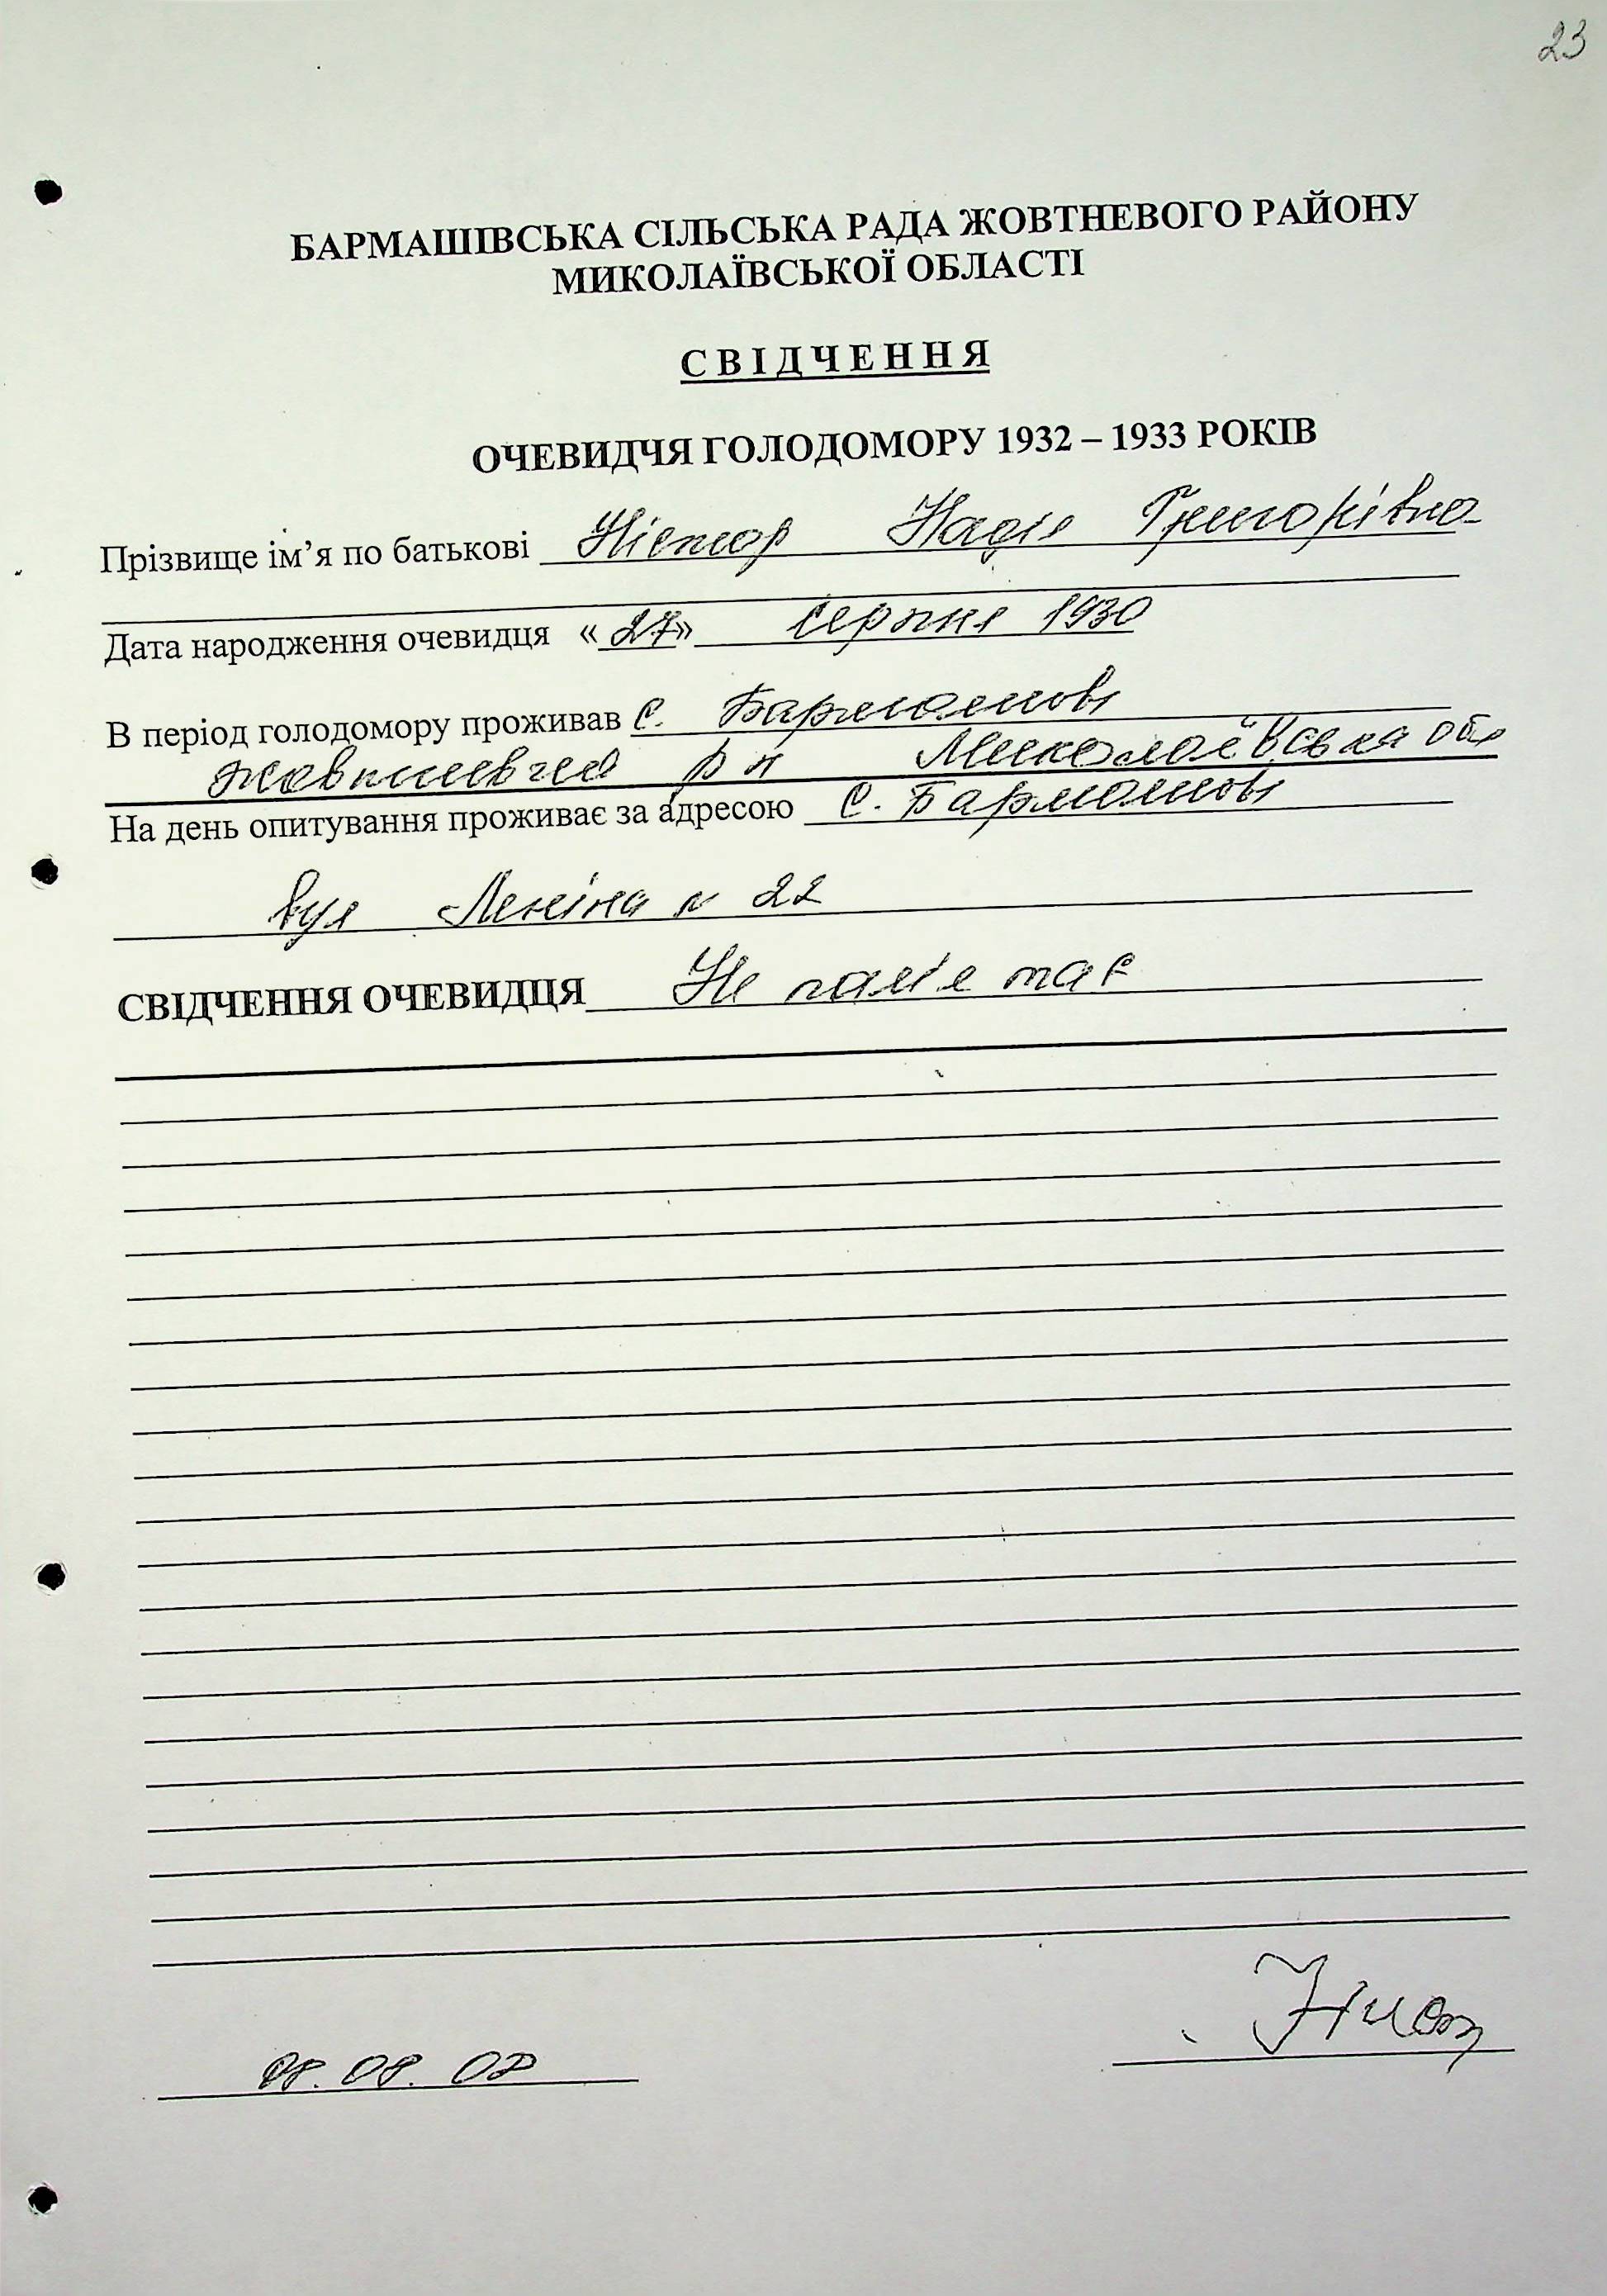 23
БАРМАШІВСЬКА СІЛЬСЬКА РАДА ЖОВТНЕВОГО РАЙОНУ
МИКОЛАЇВСЬКОЇ ОБЛАСТІ
СВІДЧЕННЯ
ОЧЕВИДЧЯ ГОЛОДОМОРУ 1932 – 1933 РОКІВ
Прізвище ім’я по батькові Ніктор Надія Григорівна
Дата народження очевидця «27» серпня 1930
В період голодомору проживав с. Бармашові
Жовтневчей р н Миколаївська обл
На день опитування проживає за адресою с. Бармашові
вул Леніна н 22
СВІДЧЕННЯ ОЧЕВИДЦЯ Не пам'ятає
08. 08. 08